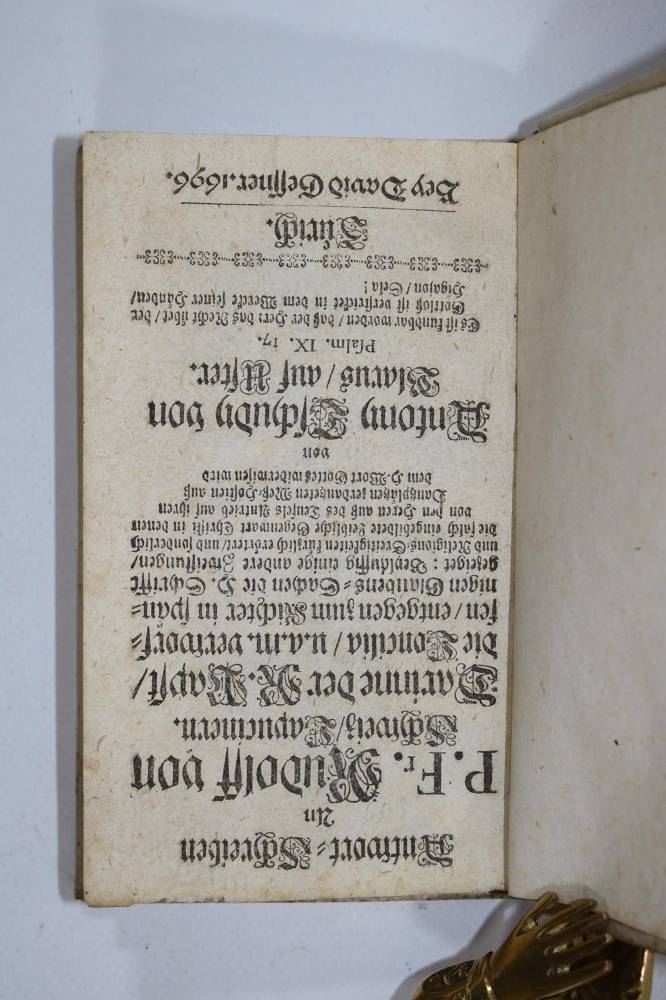 Antwort-Schreiben
An
P. Fr. Rudolff von
Schweiß / Capucinern.
Darinne der R. Papst /
die Concilia / u.a.m. verworf-
fen / entgegen zum Richter in spän-
nigen Glaubens-Sachen die H. Schrifft
gezeiget: Beyläuffig einige andere Zweiffungen /
und Religions-Streitigkeiten kürtzlich erörtert / und sonderlich
die falsch eingebildete leibliche Gegenwart Christi in denen
von den Heren auß des Teufels Antrieb auf ihren
Dantzplätzen zerdantzeten Meß-Hostien auß
dem H. Wort Gottes widerwisen wird
von
Antony Tschudy von
Glarus / auf Uster.
Psalm. IX. 17.
Es ist kundbar worden / daß der Herr das Recht übet / der
Gottloß ist verstricket in dem Wercke seiner Händen /
Higajon / Sela!
Zürich.
Bey David Gessner. 1696.